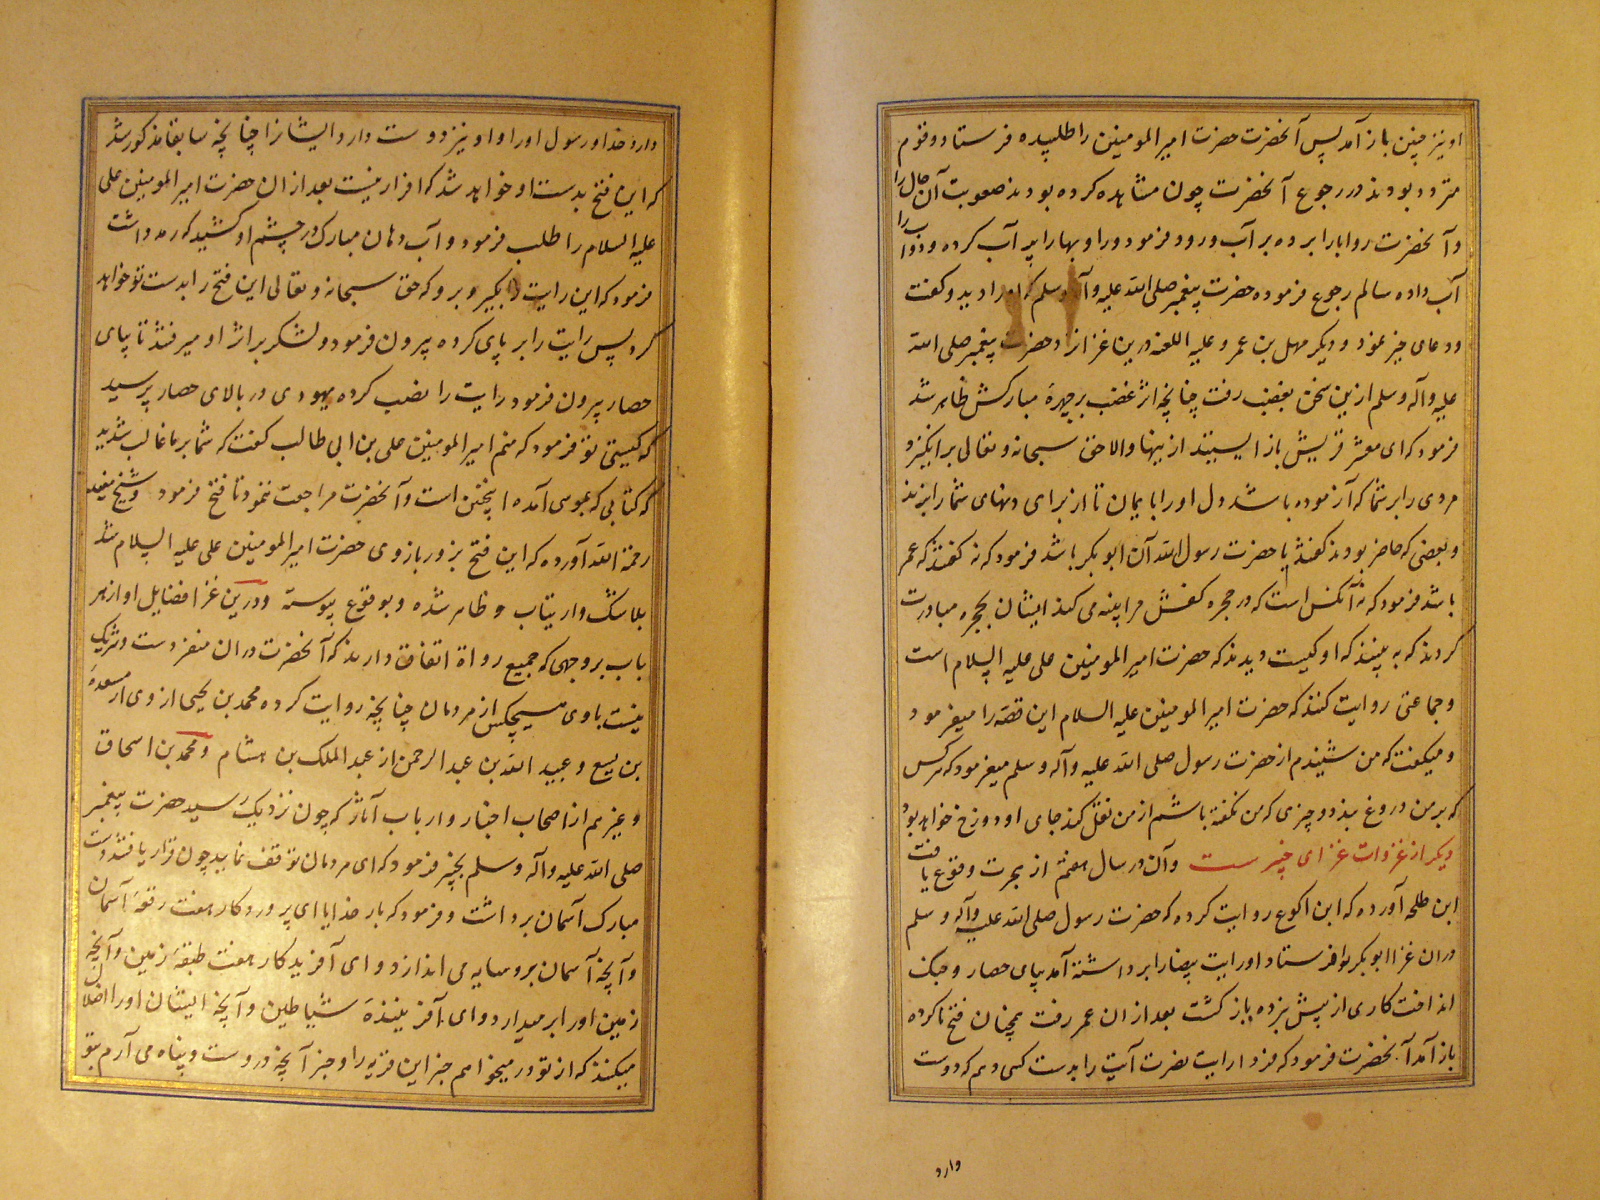 او نیز چنین باز آمد پس آنحضرت حضرت امیر المومنین را طلبیده فرستاد و قوم
متردد بودند در رجوع آنحضرت چون مشاهده کرده بودند صعوبت آن حال را
و آنحضرت روایا را برده بر آب ورود فرمود و راویها را پر آب کرده و دواب را
آب داده سالم رجوع فرموده حضرت پیغمبر صلی الله علیه و آله وسلم که او را دید و کفت
و دعای خیر نمود و دیکر سهل بن عمرو علیه اللعنه درین غزا نزد حضرت پیغمبر صلی الله
علیه و آله وسلم ازین سخن بغضب رفت چنانچه اثر غضب بر چهرهٔ مبارکش ظاهر شد
فرمود که ای معشر قریش باز ایستید ازینها و الا حق سبحانه و تعالی برانکیزد
مردی را بر شما که آزموده باشد دل او را بایمان تا از برای دینهای شما را بزند
و بعضی که حاضر بودند کفتند یا حضرت رسول الله آن ابوبکر باشد فرمود که نه کفتند که عمر
باشد فرمود که نه آنکس است که در حجره کفش مرا پینه می کند ایشان بحجره مبادرت
کردند که به بینند که او کیست دیدند که حضرت امیر المومنین علی علیه السلام است
و جماعتی روایت کنند که حضرت امیر المومنین علیه السلام این قصه را میفرمود
و میکفت که من شنیدم از حضرت رسول صلی الله علیه و آله وسلم میفرمود که هر کس
که بر من دروغ بندد و چیزی که من نکفته باشم از من نقل کند جای او دوزخ خواهد بود
دیکر از غزوات غزای خیبرست و آن در سال هفتم از هجرت وقوع یافت
ابن طلحه آورده که ابن اکوع روایت کرده که حضرت رسول صلی الله علیه و آله وسلم
در ان غزا ابوبکر را فرستاد او رایت بیضا را برداشته آمد بپای حصار و جنک
انداخت کاری از پیش نبرده باز کشت بعد از ان عمر رفت همچنان فتح ناکرده
باز آمد آنحضرت فرمود که فردا رایت نصرت آیت را بدست کسی دهم که دوست
دارد
دارد خدا و رسول او را و او نیز دوست دارد ایشانرا چنانچه سابقا مذکور شد
که این فتح بدست او خواهد شد که افرار نیست بعد از ان حضرت امیر المومنین علی
علیه السلام را طلب فرمود و آب دهان مبارک در چشم او کشید که رمد داشت
فرمود که این رایت را بکیر و برو که حق سبحانه و تعالی این فتح را بدست تو خواهد
کرد پس رایت را بر پای کرده بیرون فرمود و لشکر بر اثر او میرفتند تا بپای
حصار بیرون فرمود رایت را نصب کرده یهودی در بالای حصار پرسید
که کیستی تو فرمود که منم امیر المومنین علی بن ابی طالب کفت که شما بر ما غالب شدید
که کتابی که بموسی آمده اینچنین است و آنحضرت مراجعت ننمود تا فتح فرمود و شیخ مفید
رحمة الله آورده که این فتح بزور بازوی حضرت امیر المومنین علی علیه السلام شد
بلا شک و ارتیاب و ظاهر شده و بوقوع پیوسته و درین غزا فضایل او از هر
باب بر وجهی که جمیع رواة اتفاق دارند که آنحضرت در ان متفردست و شریک
نیست با وی هیچکس از مردمان چنانچه روایت کرده محمد بن یحیی ازدی از مسعدهٔ
بن یسع و عبید الله بن عبد الرحمن از عبد الملک بن هشام و محمد بن اسحاق
و غیر هم از اصحاب اخبار و ارباب آثار که چون نزدیک رسید حضرت پیغمبر
صلی الله علیه و آله وسلم بخیبر فرمود که ای مردمان توقف نمایید چون قرار یافتند دست
مبارک آسمان برداشت و فرمود که بار خدایا ای پروردکار هفت رقعهٔ آسمان
و آنچه آسمان برو سایه می اندازد و ای آفریدکار هفت طبقهٔ زمین و آنچه
زمین او را بر میدارد و ای آفرینندهٔ شیاطین و آنچه ایشان او را اضلال
میکنند که از تو در میخواهم خیر این قریه را و خیر آنچه دروست و پناه می آرم بتو